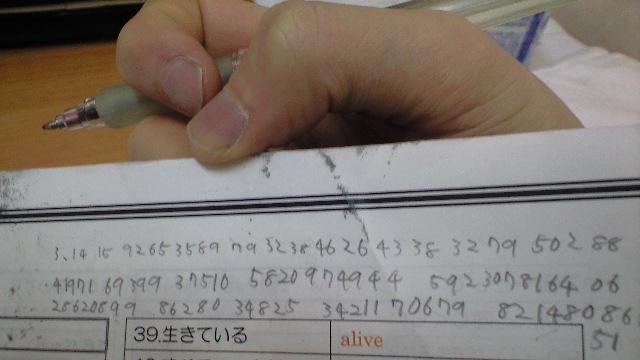 3.14 15 92653589 79 3238 46 26 43 38 32 79 502 88
41971 69399 37510 5820974944 592307 8164 06
28620899 86280 34825 34211 70679 82148086
51
39.生きている alive